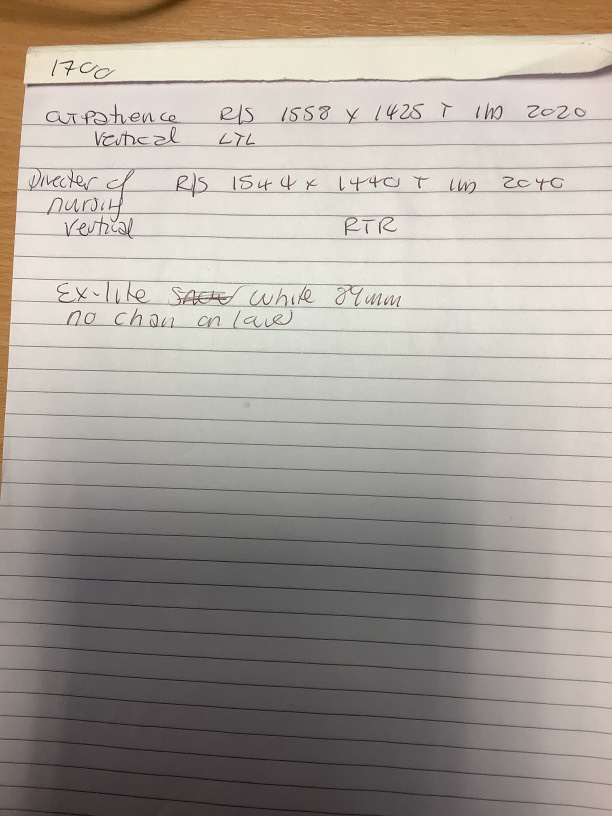 1700
R/S 1558 x 1425 T 1m 2020
Vertical LTL
Director of R/S 1544 x 1440 T 1m 2040
nursing
Vertical RTR
Ex-lite white 89mm
no chain on